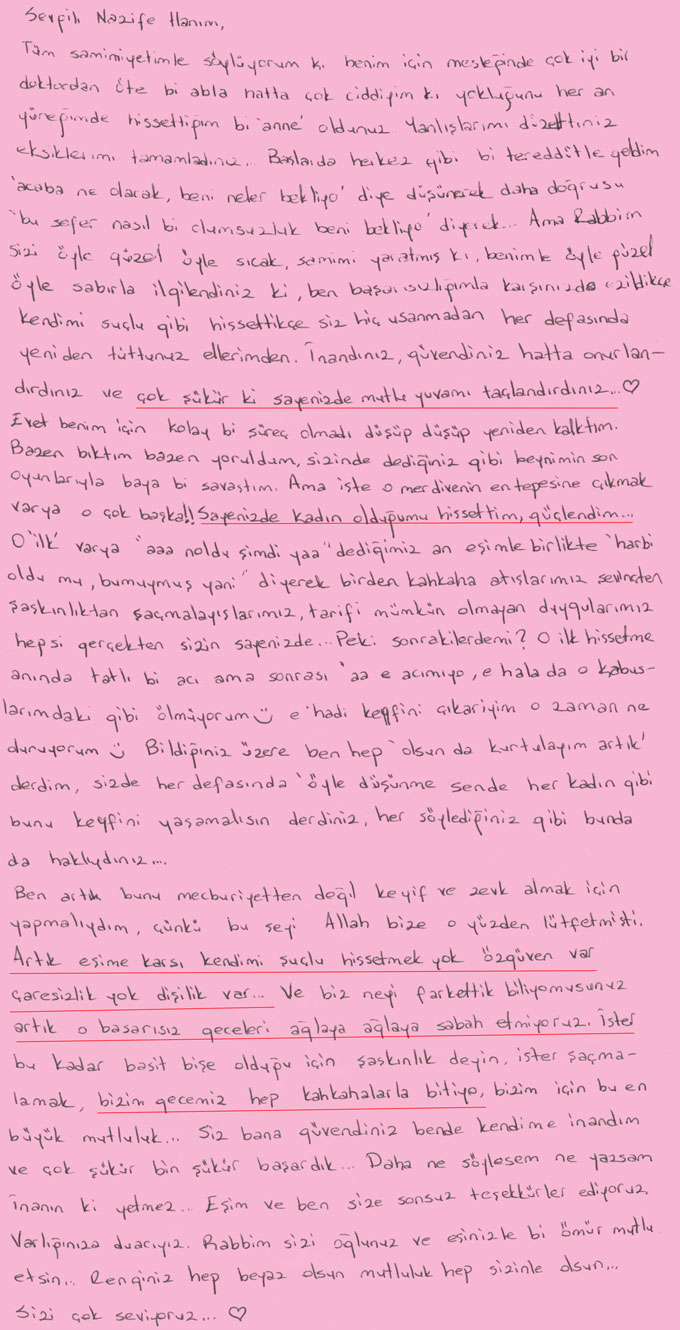 Sevgili Nazife Hanım,
Tüm samimiyetimle söylüyorum ki benim için mesleğinde çok iyi bir
doktordan öte bi abla hatta çok ciddiyim ki yokluğunu her an
yüreğimde hissettiğim bi 'anne' oldunuz. Yanlışlarımı düzelttiniz
eksiklerimi tamamladınız.. Başlarda herkez gibi bi tereddütle geldim
'acaba ne olacak, beni neler bekliyo' diye düşünerek daha doğrusu
'bu sefer nasıl bi olumsuzluk beni bekliyo' diyerek... Ama Rabbim
sizi öyle güzel öyle sıcak, samimi yaratmış ki, benimle öyle güzel
öyle sabırla ilgilendiniz ki, ben başarısızlığımla karşınızda ezildikçe
kendimi suçlu gibi hissettikçe siz hiç usanmadan her defasında
yeniden tuttunuz ellerimden. İnandınız, güvendiniz hatta onurlan-
dırdınız ve çok şükür ki sayenizde mutlu yuvamı taçlandırdınız...♡
Evet benim için kolay bi süreç olmadı düşüp düşüp yeniden kalktım.
Bazen bıktım bazen yoruldum, sizinde dediğiniz gibi beynimin son
oyunlarıyla baya bi savaştım. Ama işte o merdivenin en tepesine çıkmak
varya o çok başka!! Sayenizde kadın olduğumu hissettim, güçlendim...
O 'ilk' varya 'aaa noldu şimdi yaa" dediğimiz an eşimle birlikte 'harbi
oldu mu, bumuymuş yani" diyerek birden kahkaha atışlarımız sevinçten
şaşkınlıktan saçmalayışlarımız, tarifi mümkün olmayan duygularımız
hepsi gerçekten sizin sayenizde... Peki sonrakilerdemi? O ilk hissetme
anında tatlı bi acı ama sonrası 'aa e acımıyo, e hala da o kabus-
larımdaki gibi ölmüyorum ☺ e 'hadi keyfini çıkariyim o zaman ne
duruyorum ☺ Bildiğiniz üzere ben hep 'olsun da kurtulayım artık'
derdim, sizde her defasında 'öyle düşünme sende her kadın gibi
bunu keyfini yaşamalısın derdiniz, her söylediğiniz gibi bunda
da haklıydınız...
Ben artık bunu mecburiyetten değil keyif ve zevk almak için
yapmalıydım, çünkü bu şeyi Allah bize o yüzden lütfetmişti.
Artık eşime karşı kendimi suçlu hissetmek yok özgüven var
çaresizlik yok dişilik var... Ve biz neyi farkettik biliyomusunuz
artık o başarısız geceleri ağlaya ağlaya sabah etmiyoruz. İster
bu kadar basit bişe olduğu için şaşkınlık deyin, ister saçma-
lamak, bizim gecemiz hep kahkahalarla bitiyo, bizim için bu en
büyük mutluluk... Siz bana güvendiniz bende kendime inandım
ve çok şükür bin şükür başardık... Daha ne söylesem ne yazsam
inanın ki yetmez... Eşim ve ben size sonsuz teşekkürler ediyoruz
Varlığınıza duacıyız. Rabbim sizi oğlunuz ve eşinizle bi ömür mutlu
etsin... Renginiz hep beyaz olsun mutluluk hep sizinle olsun...
Sizi çok seviyoruz... ♡